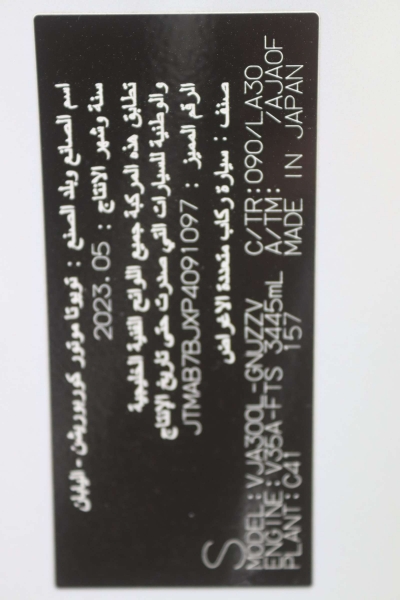 اسم الصنع وبلد الصنع : تويوتا موتور كوربوريشن - اليابان
سنة وشهر الانتاج : 2023.05
تطابق هذه المركبة جميع اللوائح الفنية الخليجية
والوطنية للسيارات التي صدرت حتى تاريخ الإنتاج
الرقم المميز : JTMAB7BJXP4091097
صنف : سيارة ركاب متعددة الاغراض
S
MODEL:VJA300L-GNUZZV C/TR:090/LA30
ENGINE:V35A-FTS 3445mL A/TM: /AJA0F
PLANT:C41 157 MADE IN JAPAN